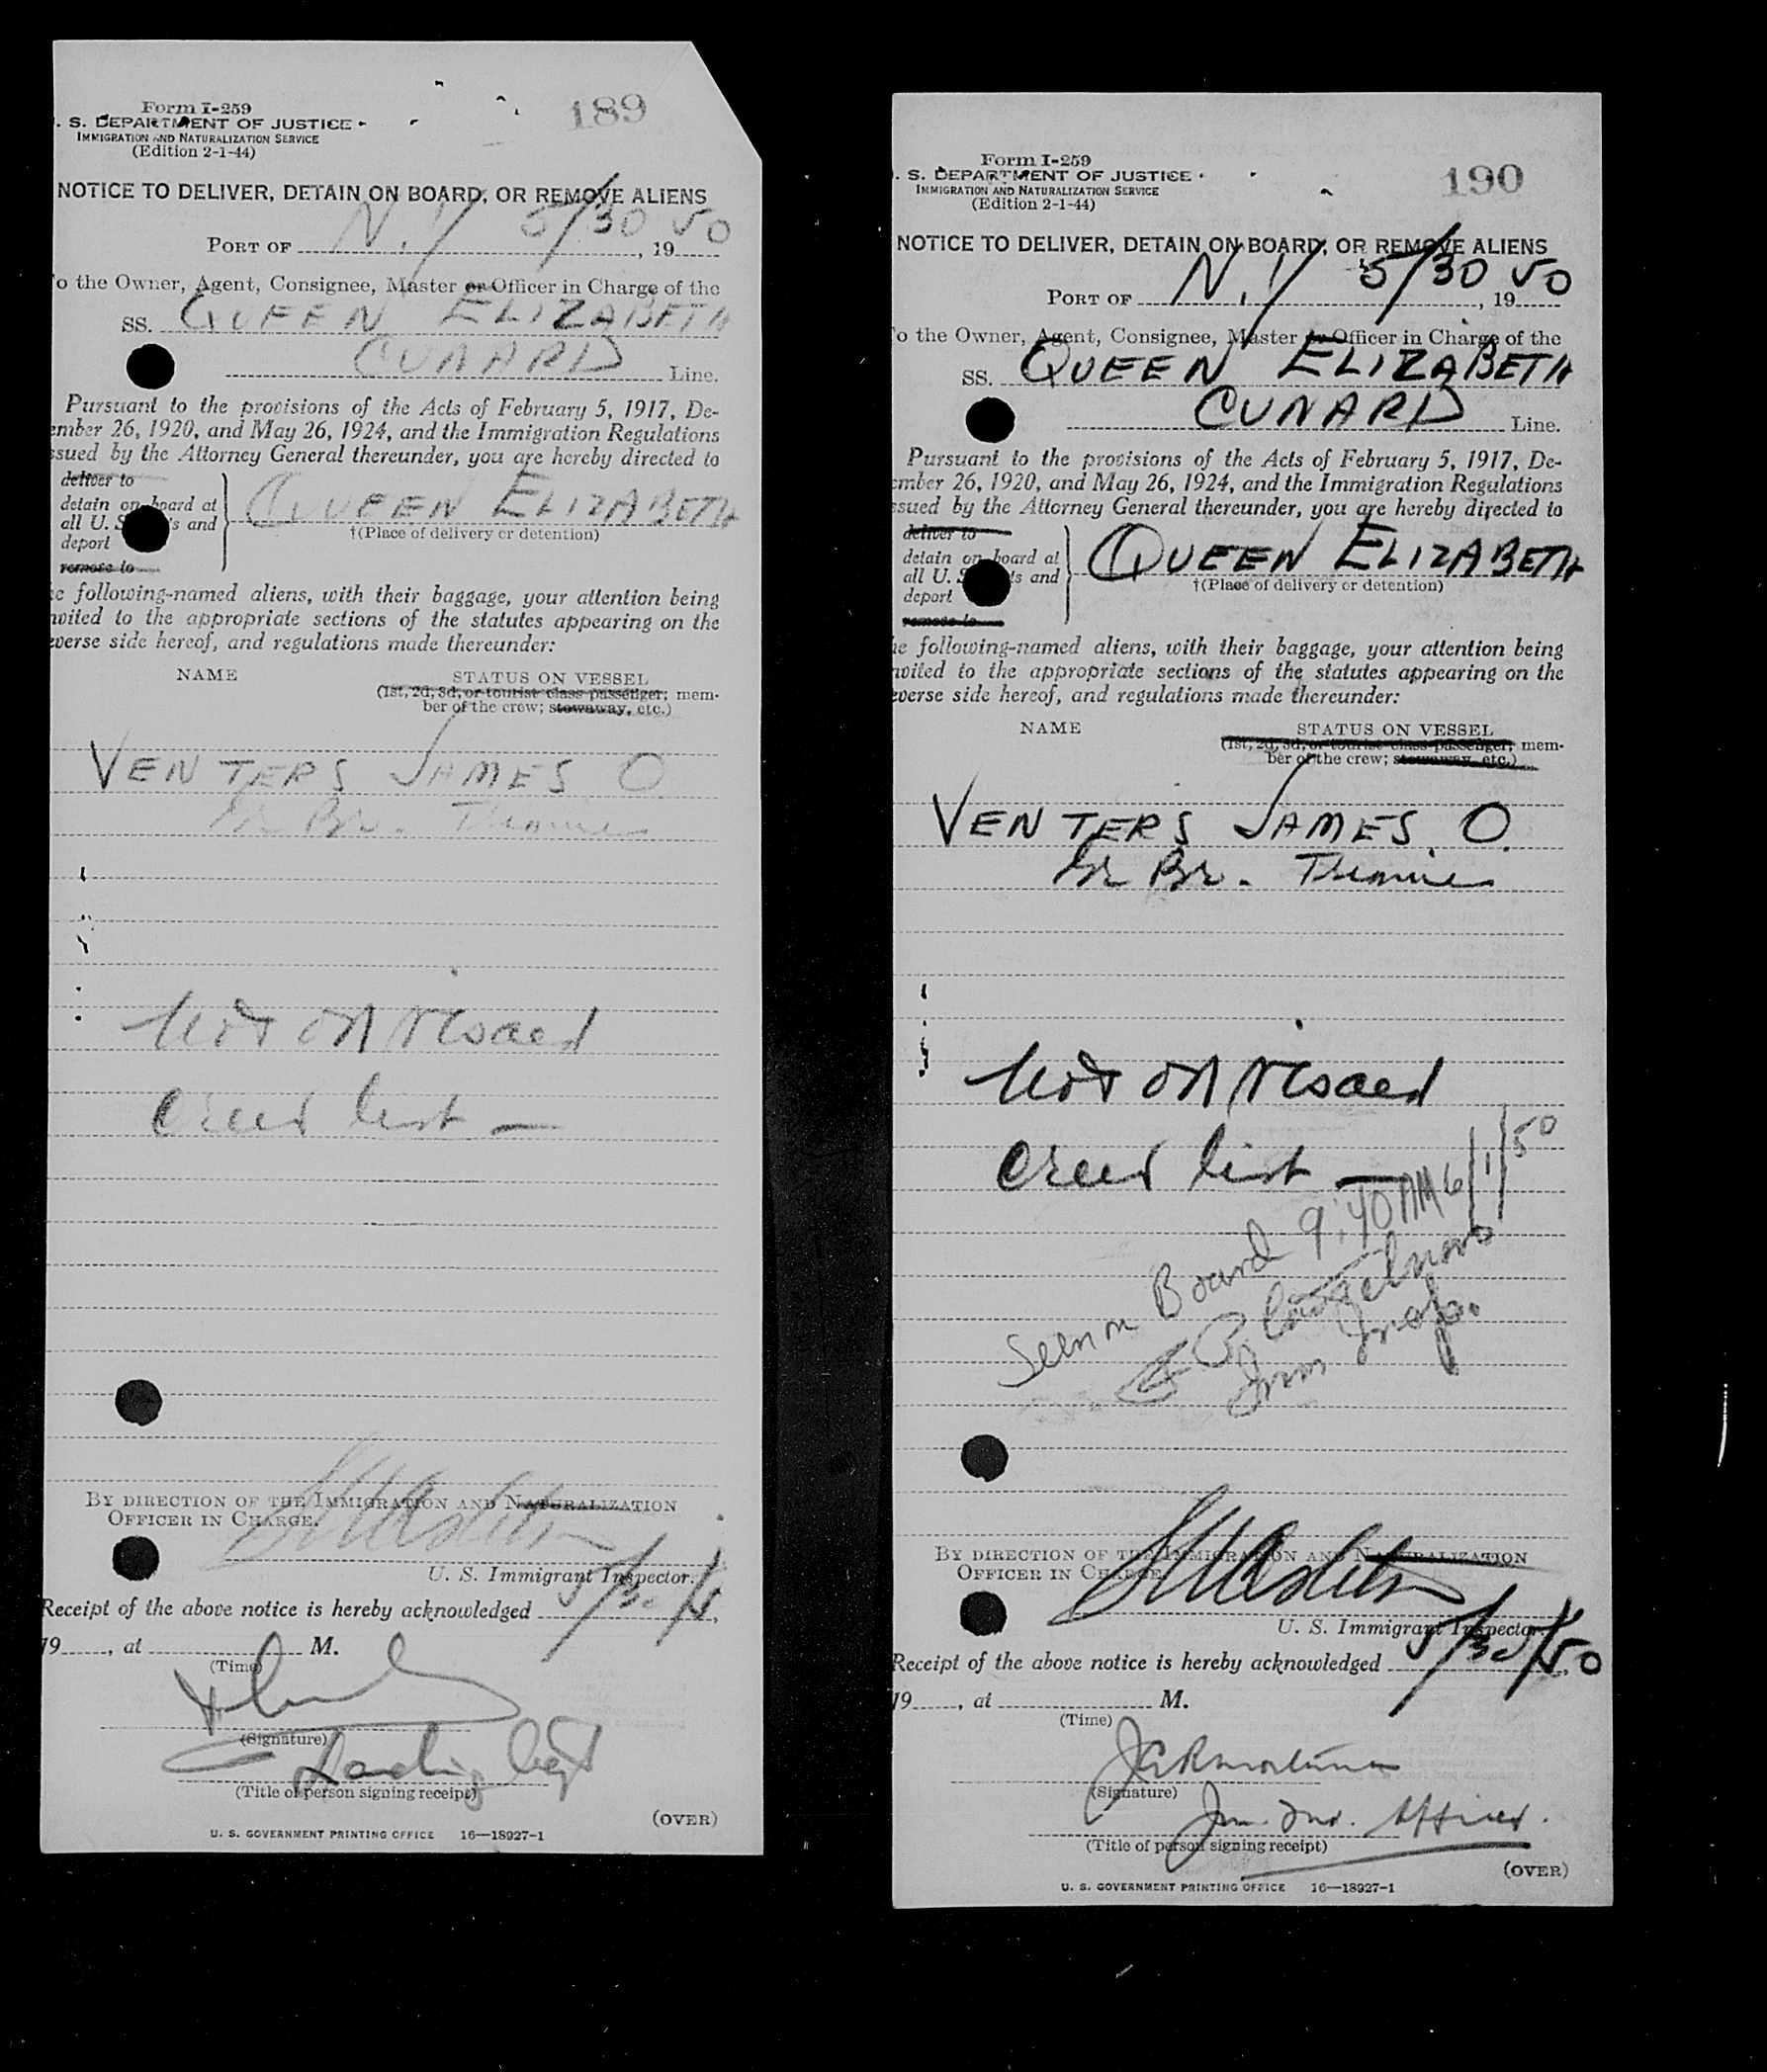 Form I-259
189
. S. DEPARTMENT OF JUSTICE
IMMIGRATION AND NATURALIZATION SERVICE
(Edition 2-1-44)
NOTICE TO DELIVER, DETAIN ON BOARD, OR REMOVE ALIENS
PORT OF N.Y 5/30, 1950
o the Owner, Agent, Consignee, Master or Officer in Charge of the
SS. QUEEN ELIZABETH
CUNARD Line.
Pursuant to the provisions of the Acts of February 5, 1917, De-
ember 26, 1920, and May 26, 1924, and the Immigration Regulations
ssued by the Attorney General thereunder, you are hereby directed to
deliver to
detain on board at
all U. S. ts and
deport
remove to
QUEEN ELIZABETH
†(Place of delivery or detention)
e following-named aliens, with their baggage, your attention being
nvited to the appropriate sections of the statutes appearing on the
everse side hereof, and regulations made thereunder:
NAME STATUS ON VESSEL
(1st, 2d, 3d, or tourist class passenger; mem-
ber of the crew; stowaway, etc.)
VENTERS JAMES O
Gr Br.
Not on visaed
crew list —
BY DIRECTION OF THE IMMIGRATION AND NATURALIZATION
OFFICER IN CHARGE.
U. S. Immigrant Inspector.
Receipt of the above notice is hereby acknowledged 5/30/5,
19, at M.
(Time)
(Signature)
(Title of person signing receipt)
(OVER)
U. S. GOVERNMENT PRINTING OFFICE 16—18927-1
Form I-259
190
. S. DEPARTMENT OF JUSTICE
IMMIGRATION AND NATURALIZATION SERVICE
(Edition 2-1-44)
NOTICE TO DELIVER, DETAIN ON BOARD, OR REMOVE ALIENS
PORT OF N.Y 5/30, 1950
o the Owner, Agent, Consignee, Master or Officer in Charge of the
SS. QUEEN ELIZABETH
CUNARD Line.
Pursuant to the provisions of the Acts of February 5, 1917, De-
ember 26, 1920, and May 26, 1924, and the Immigration Regulations
ssued by the Attorney General thereunder, you are hereby directed to
deliver to
detain on board at
all U. S. ts and
deport
remove to
QUEEN ELIZABETH
†(Place of delivery or detention)
e following-named aliens, with their baggage, your attention being
nvited to the appropriate sections of the statutes appearing on the
everse side hereof, and regulations made thereunder:
NAME STATUS ON VESSEL
(1st, 2d, 3d, or tourist class passenger; mem-
ber of the crew; stowaway, etc.)
VENTERS JAMES. O.
Gr Br.
Not on visaed
crew list —
Seen on Board 9:40 AM 6/1/50
Imm Insp.
BY DIRECTION OF THE IMMIGRATION AND NATURALIZATION
OFFICER IN CHARGE
U. S. Immigrant Inspector.
Receipt of the above notice is hereby acknowledged 5/30/50,
19, at M.
(Time)
(Signature)
Officer.
(Title of person signing receipt)
(OVER)
U. S. GOVERNMENT PRINTING OFFICE 16—18927-1